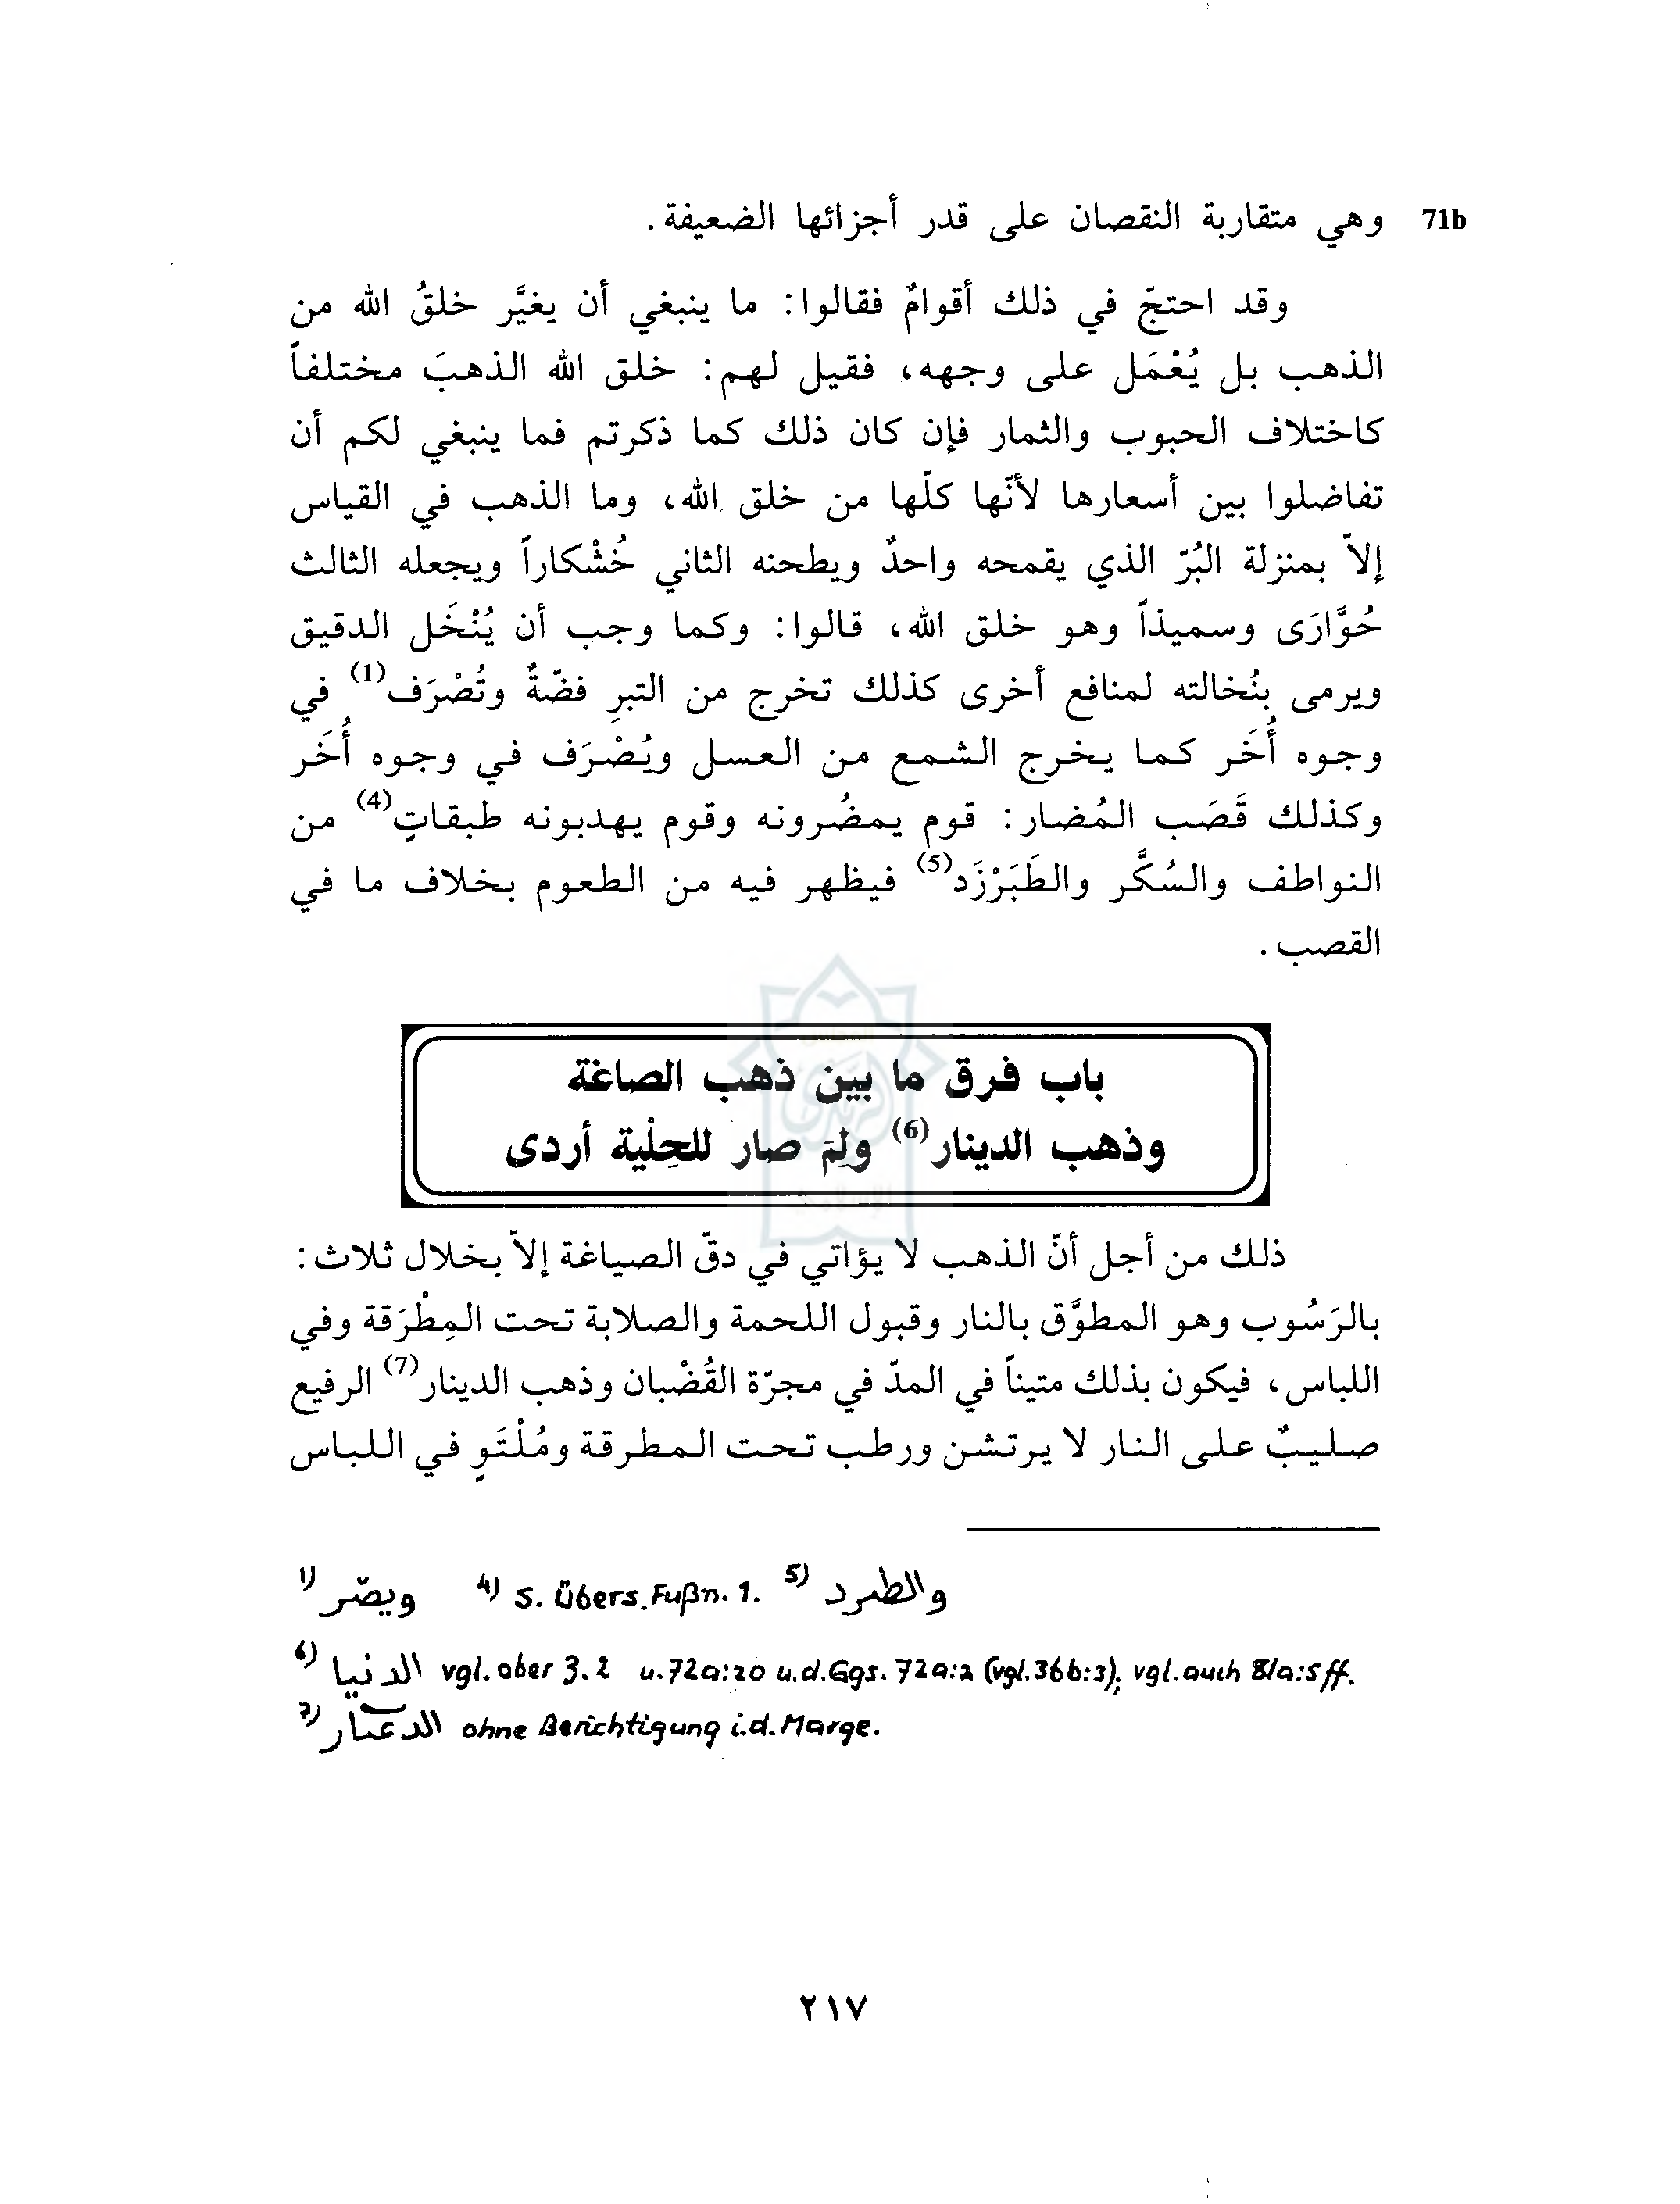 71b وهي متقاربة النقصان على قدر أجزائها الضعيفة.
وقد احتجّ في ذلك أقوامٌ فقالوا: ما ينبغي أن يغيَّر خلقُ الله من
الذهب بل يُعْمَل على وجهه، فقيل لهم: خلق الله الذهبَ مختلفاً
كاختلاف الحبوب والثمار فإن كان ذلك كما ذكرتم فما ينبغي لكم أن
تفاضلوا بين أسعارها لأنّها كلّها من خلق الله، وما الذهب في القياس
إلاّ بمنزلة البُرّ الذي يقمحه واحدٌ ويطحنه الثاني خُشْكاراً ويجعله الثالث
حُوَّارَى وسميذاً وهو خلق الله، قالوا: وكما وجب أن يُنْخَل الدقيق
ويرمى بنُخالته لمنافع أخرى كذلك تخرج من التبرِ فضّةٌ وتُصْرَف(1) في
وجوه أُخَر كما يخرج الشمع من العسل ويُصْرَف في وجوه أُخَر
وكذلك قَصَب المُضار: قوم يمضُرونه وقوم يهدبونه طبقاتٍ(4) من
النواطف والسُكَّر والطَبَرْزَد(5) فيظهر فيه من الطعوم بخلاف ما في
القصب.
باب فرق ما بين ذهب الصاغة
وذهب الدينار(6) ولِمَ صار للحِلْية أردى
ذلك من أجل أنّ الذهب لا يؤاتي في دقّ الصياغة إلاّ بخلال ثلاث:
بالرَسُوب وهو المطوَّق بالنار وقبول اللحمة والصلابة تحت المِطْرَقة وفي
اللباس، فيكون بذلك متيناً في المدّ في مجرّة القُضْبان وذهب الدينار(7) الرفيع
صليبٌ على النار لا يرتشن ورطب تحت المطرقة ومُلْتَوٍ في اللباس
1) ويصّر 4) s. Übers. Fußn. 1. 5) والطبرد
6) الدنيا vgl. aber 3.2 u. 72a:20 u.d.Ggs. 72a:2 (vgl. 36b:3); vgl. auch 81a:5ff.
7) ohne Berichtigung i.d. Marge.
٢١٧